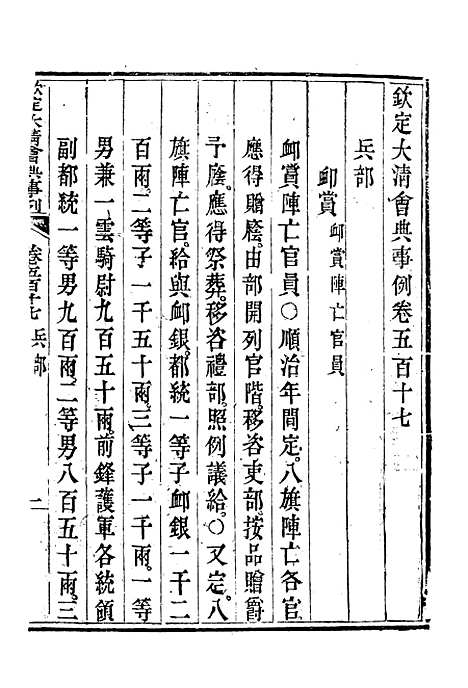 欽定大清會典事例卷五百十七
兵部
卹賞 卹賞陣亡官員
卹賞陣亡官員○順治年間定。八旗陣亡各官
應得贈廕。由部開列官階。移咨吏部。按品贈爵
予廕。應得祭葬。移咨禮部。照例議給。○又定。八
旗陣亡官。給與卹銀。都統一等子卹銀一千二
百兩。二等子一千五十兩。三等子一千兩。一等
男兼一雲騎尉九百五十兩。前鋒護軍各統領
副都統一等男九百兩。二等男八百五十兩。三
欽定大清會典事例 卷五百十七 兵部 二